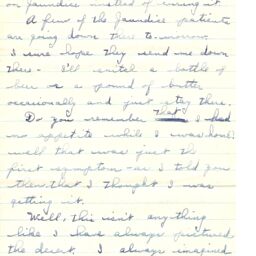 on jaundice instead of curing it.
A few of the jaundice patients
are going down there to-morrow.
I sure hope they send me down
there - I'll switch a bottle of
beer or a pound of butter
occasionally and just stay there.
Do you remember that I had
no appetite while I was home?
well that was just the
first symptom - as I told you
then that I thought I was
getting it.
Well, this isn't anything
like I have always pictured
the desert. I always imagined